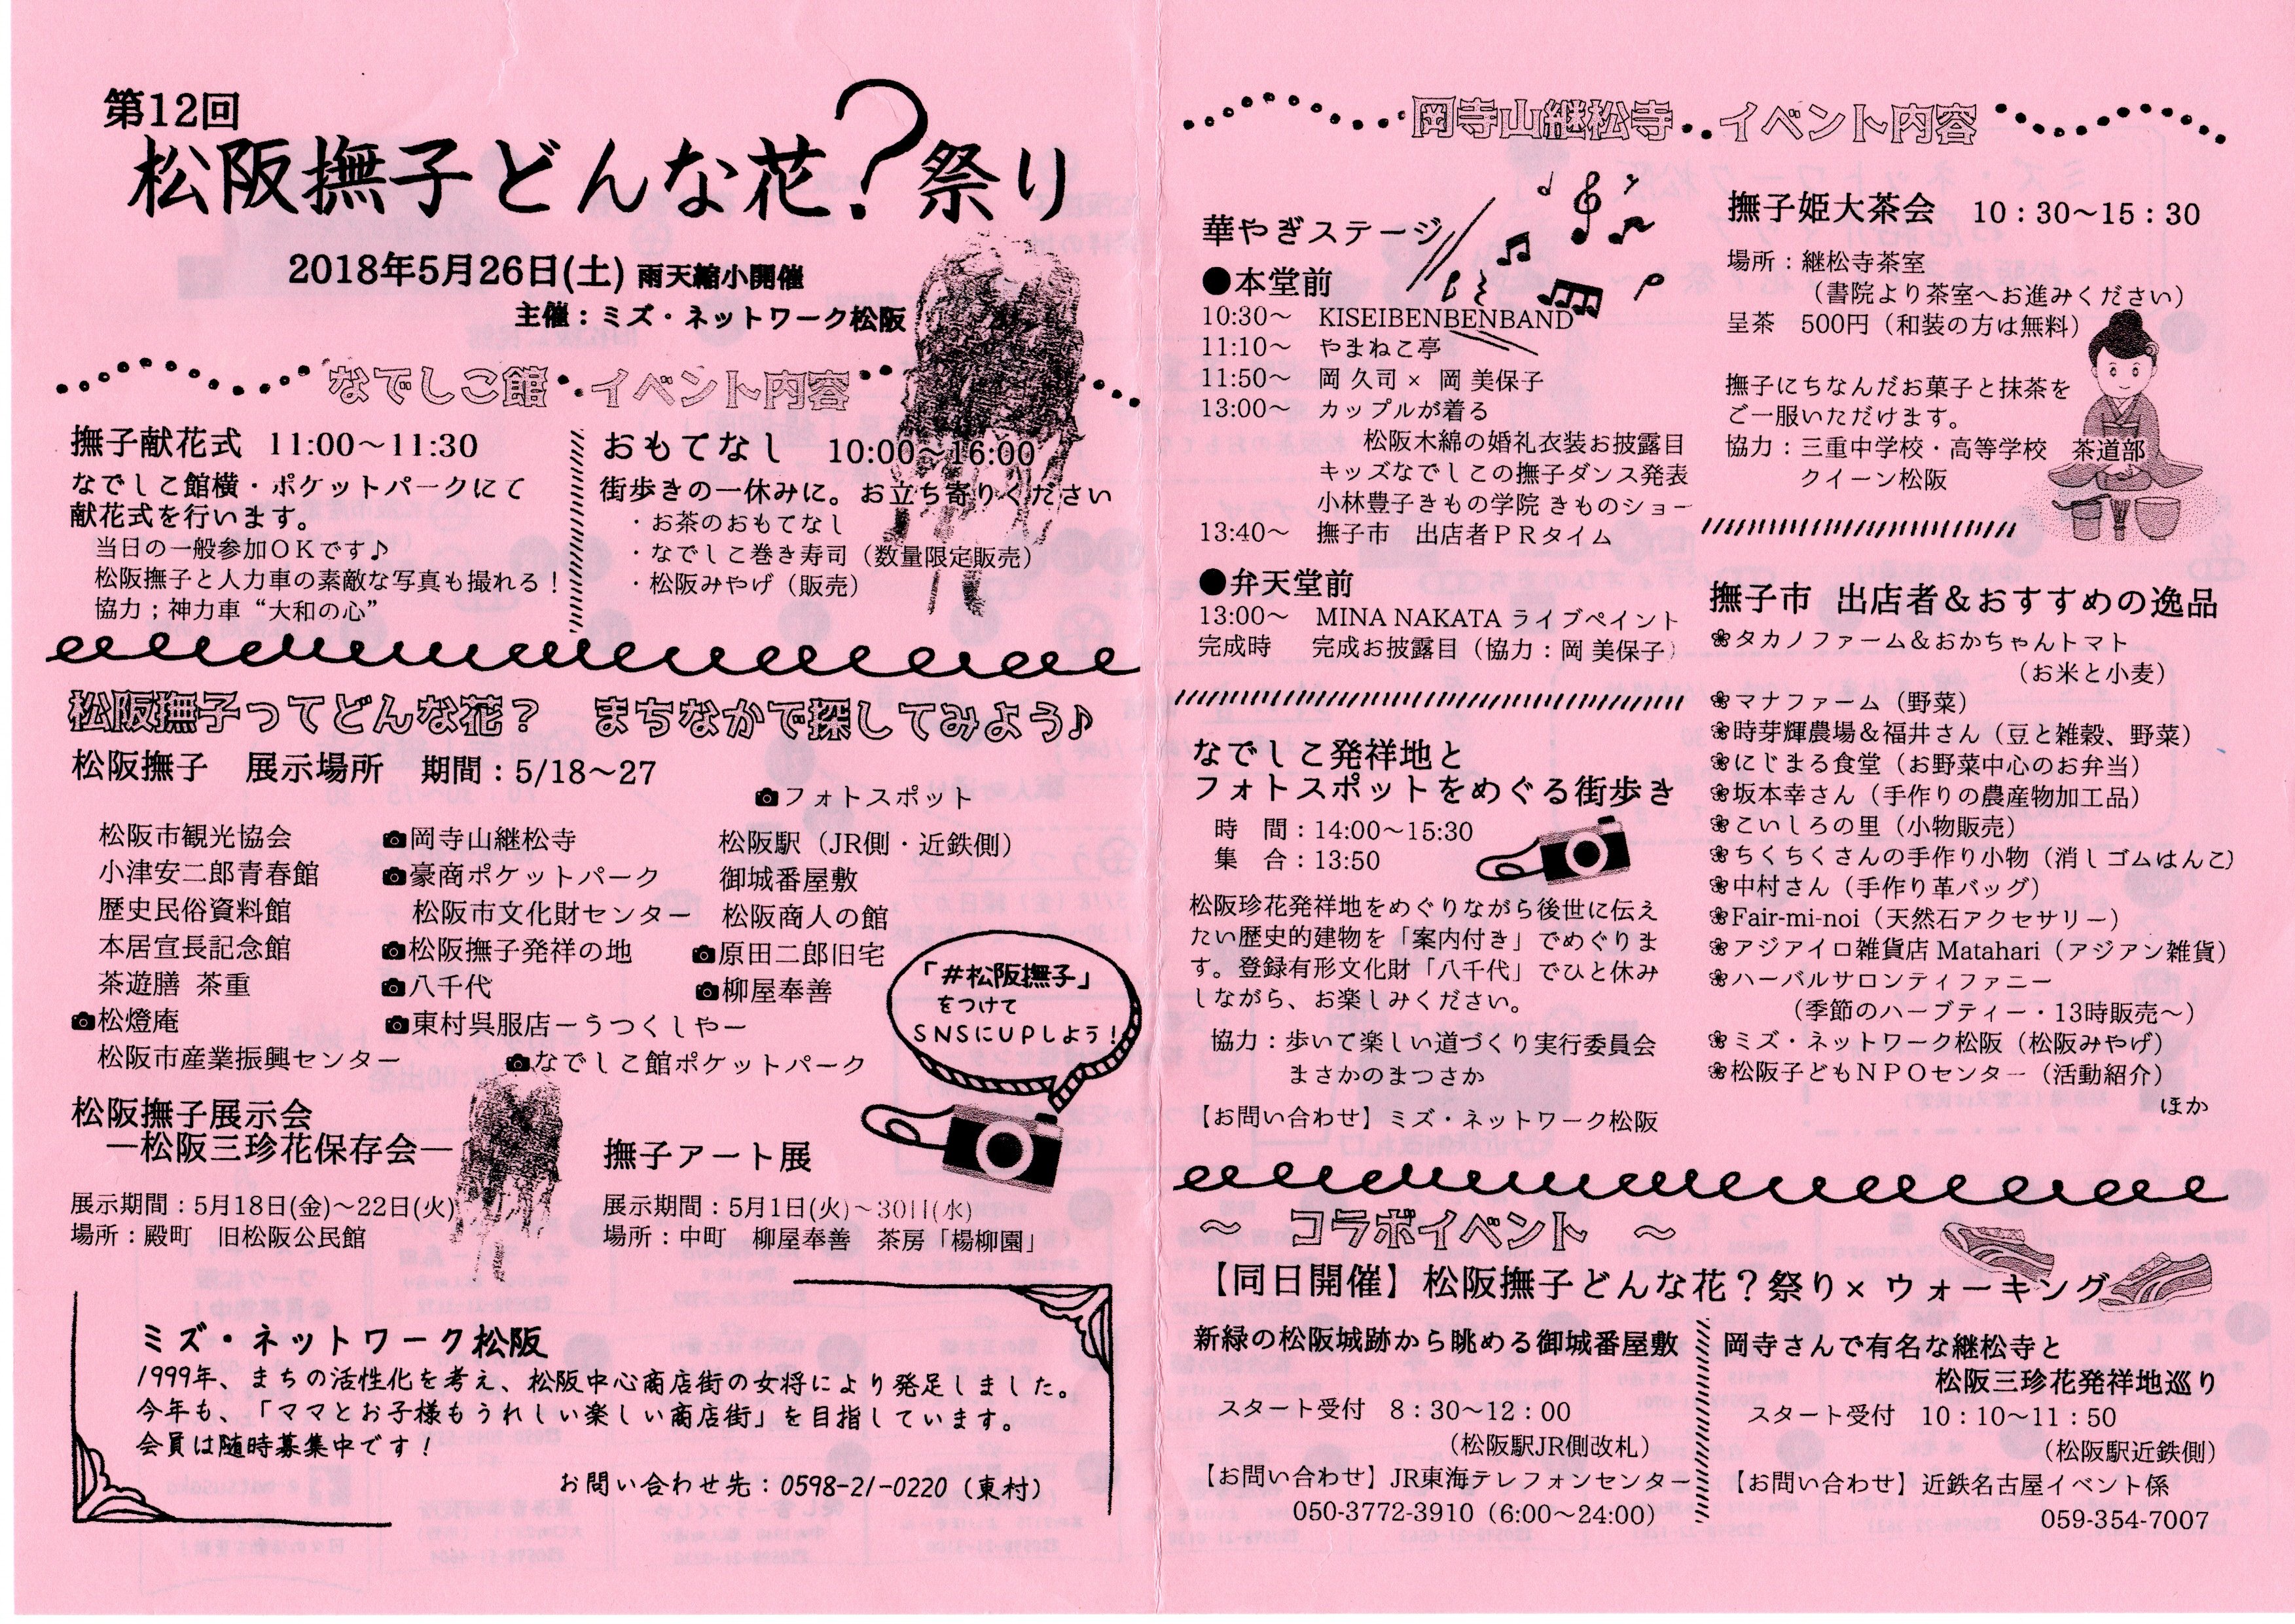 第12回
松阪撫子どんな花?祭り
2018年5月26日(土) 雨天縮小開催
主催：ミズ・ネットワーク松阪
なでしこ館 イベント内容
撫子献花式 11:00～11:30
なでしこ館横・ポケットパークにて
献花式を行います。
当日の一般参加OKです♪
松阪撫子と人力車の素敵な写真も撮れる！
協力；神力車“大和の心”
おもてなし 10:00～16:00
街歩きの一休みに。お立ち寄りください
・お茶のおもてなし
・なでしこ巻き寿司（数量限定販売）
・松阪みやげ（販売）
松阪撫子ってどんな花？ まちなかで探してみよう♪
松阪撫子 展示場所 期間：5/18～27
フォトスポット
松阪市観光協会
小津安二郎青春館
歴史民俗資料館
本居宣長記念館
茶遊膳 茶重
松燈庵
松阪市産業振興センター
岡寺山継松寺
豪商ポケットパーク
松阪市文化財センター
松阪撫子発祥の地
八千代
東村呉服店－うつくしや－
なでしこ館ポケットパーク
松阪駅（JR側・近鉄側）
御城番屋敷
松阪商人の館
原田二郎旧宅
柳屋奉善
「#松阪撫子」
をつけて
SNSにUPしよう！
松阪撫子展示会
―松阪三珍花保存会―
展示期間：5月18日(金)～22日(火)
場所：殿町 旧松阪公民館
撫子アート展
展示期間：5月1日(火)～30日(水)
場所：中町 柳屋奉善 茶房「楊柳園」
ミズ・ネットワーク松阪
1999年、まちの活性化を考え、松阪中心商店街の女将により発足しました。
今年も、「ママとお子様もうれしい楽しい商店街」を目指しています。
会員は随時募集中です！
お問い合わせ先：0598-21-0220（東村）
岡寺山継松寺 イベント内容
華やぎステージ
●本堂前
10:30～ KISEIBENBENBAND
11:10～ やまねこ亭
11:50～ 岡 久司 × 岡 美保子
13:00～ カップルが着る
松阪木綿の婚礼衣装お披露目
キッズなでしこの撫子ダンス発表
小林豊子きもの学院 きものショー
13:40～ 撫子市 出店者PRタイム
●弁天堂前
13:00～ MINA NAKATA ライブペイント
完成時 完成お披露目（協力：岡 美保子）
なでしこ発祥地と
フォトスポットをめぐる街歩き
時 間：14:00～15:30
集 合：13:50
松阪珍花発祥地をめぐりながら後世に伝え
たい歴史的建物を「案内付き」でめぐりま
す。登録有形文化財「八千代」でひと休み
しながら、お楽しみください。
協力：歩いて楽しい道づくり実行委員会
まさかのまつさか
【お問い合わせ】ミズ・ネットワーク松阪
撫子姫大茶会 10：30～15：30
場所：継松寺茶室
（書院より茶室へお進みください）
呈茶 500円（和装の方は無料）
撫子にちなんだお菓子と抹茶を
ご一服いただけます。
協力：三重中学校・高等学校 茶道部
クイーン松阪
撫子市 出店者＆おすすめの逸品
❀タカノファーム＆おかちゃんトマト
（お米と小麦）
❀マナファーム（野菜）
❀時芽輝農場＆福井さん（豆と雑穀、野菜）
❀にじまる食堂（お野菜中心のお弁当）
❀坂本幸さん（手作りの農産物加工品）
❀こいしろの里（小物販売）
❀ちくちくさんの手作り小物（消しゴムはんこ）
❀中村さん（手作り革バッグ）
❀Fair-mi-noi（天然石アクセサリー）
❀アジアイロ雑貨店 Matahari（アジアン雑貨）
❀ハーバルサロンティファニー
（季節のハーブティー・13時販売～）
❀ミズ・ネットワーク松阪（松阪みやげ）
❀松阪子どもNPOセンター（活動紹介）
ほか
～ コラボイベント ～
【同日開催】松阪撫子どんな花？祭り×ウォーキング
新緑の松阪城跡から眺める御城番屋敷
スタート受付 8：30～12：00
（松阪駅JR側改札）
【お問い合わせ】JR東海テレフォンセンター
050-3772-3910（6:00～24:00）
岡寺さんで有名な継松寺と
松阪三珍花発祥地巡り
スタート受付 10：10～11：50
（松阪駅近鉄側）
【お問い合わせ】近鉄名古屋イベント係
059-354-7007